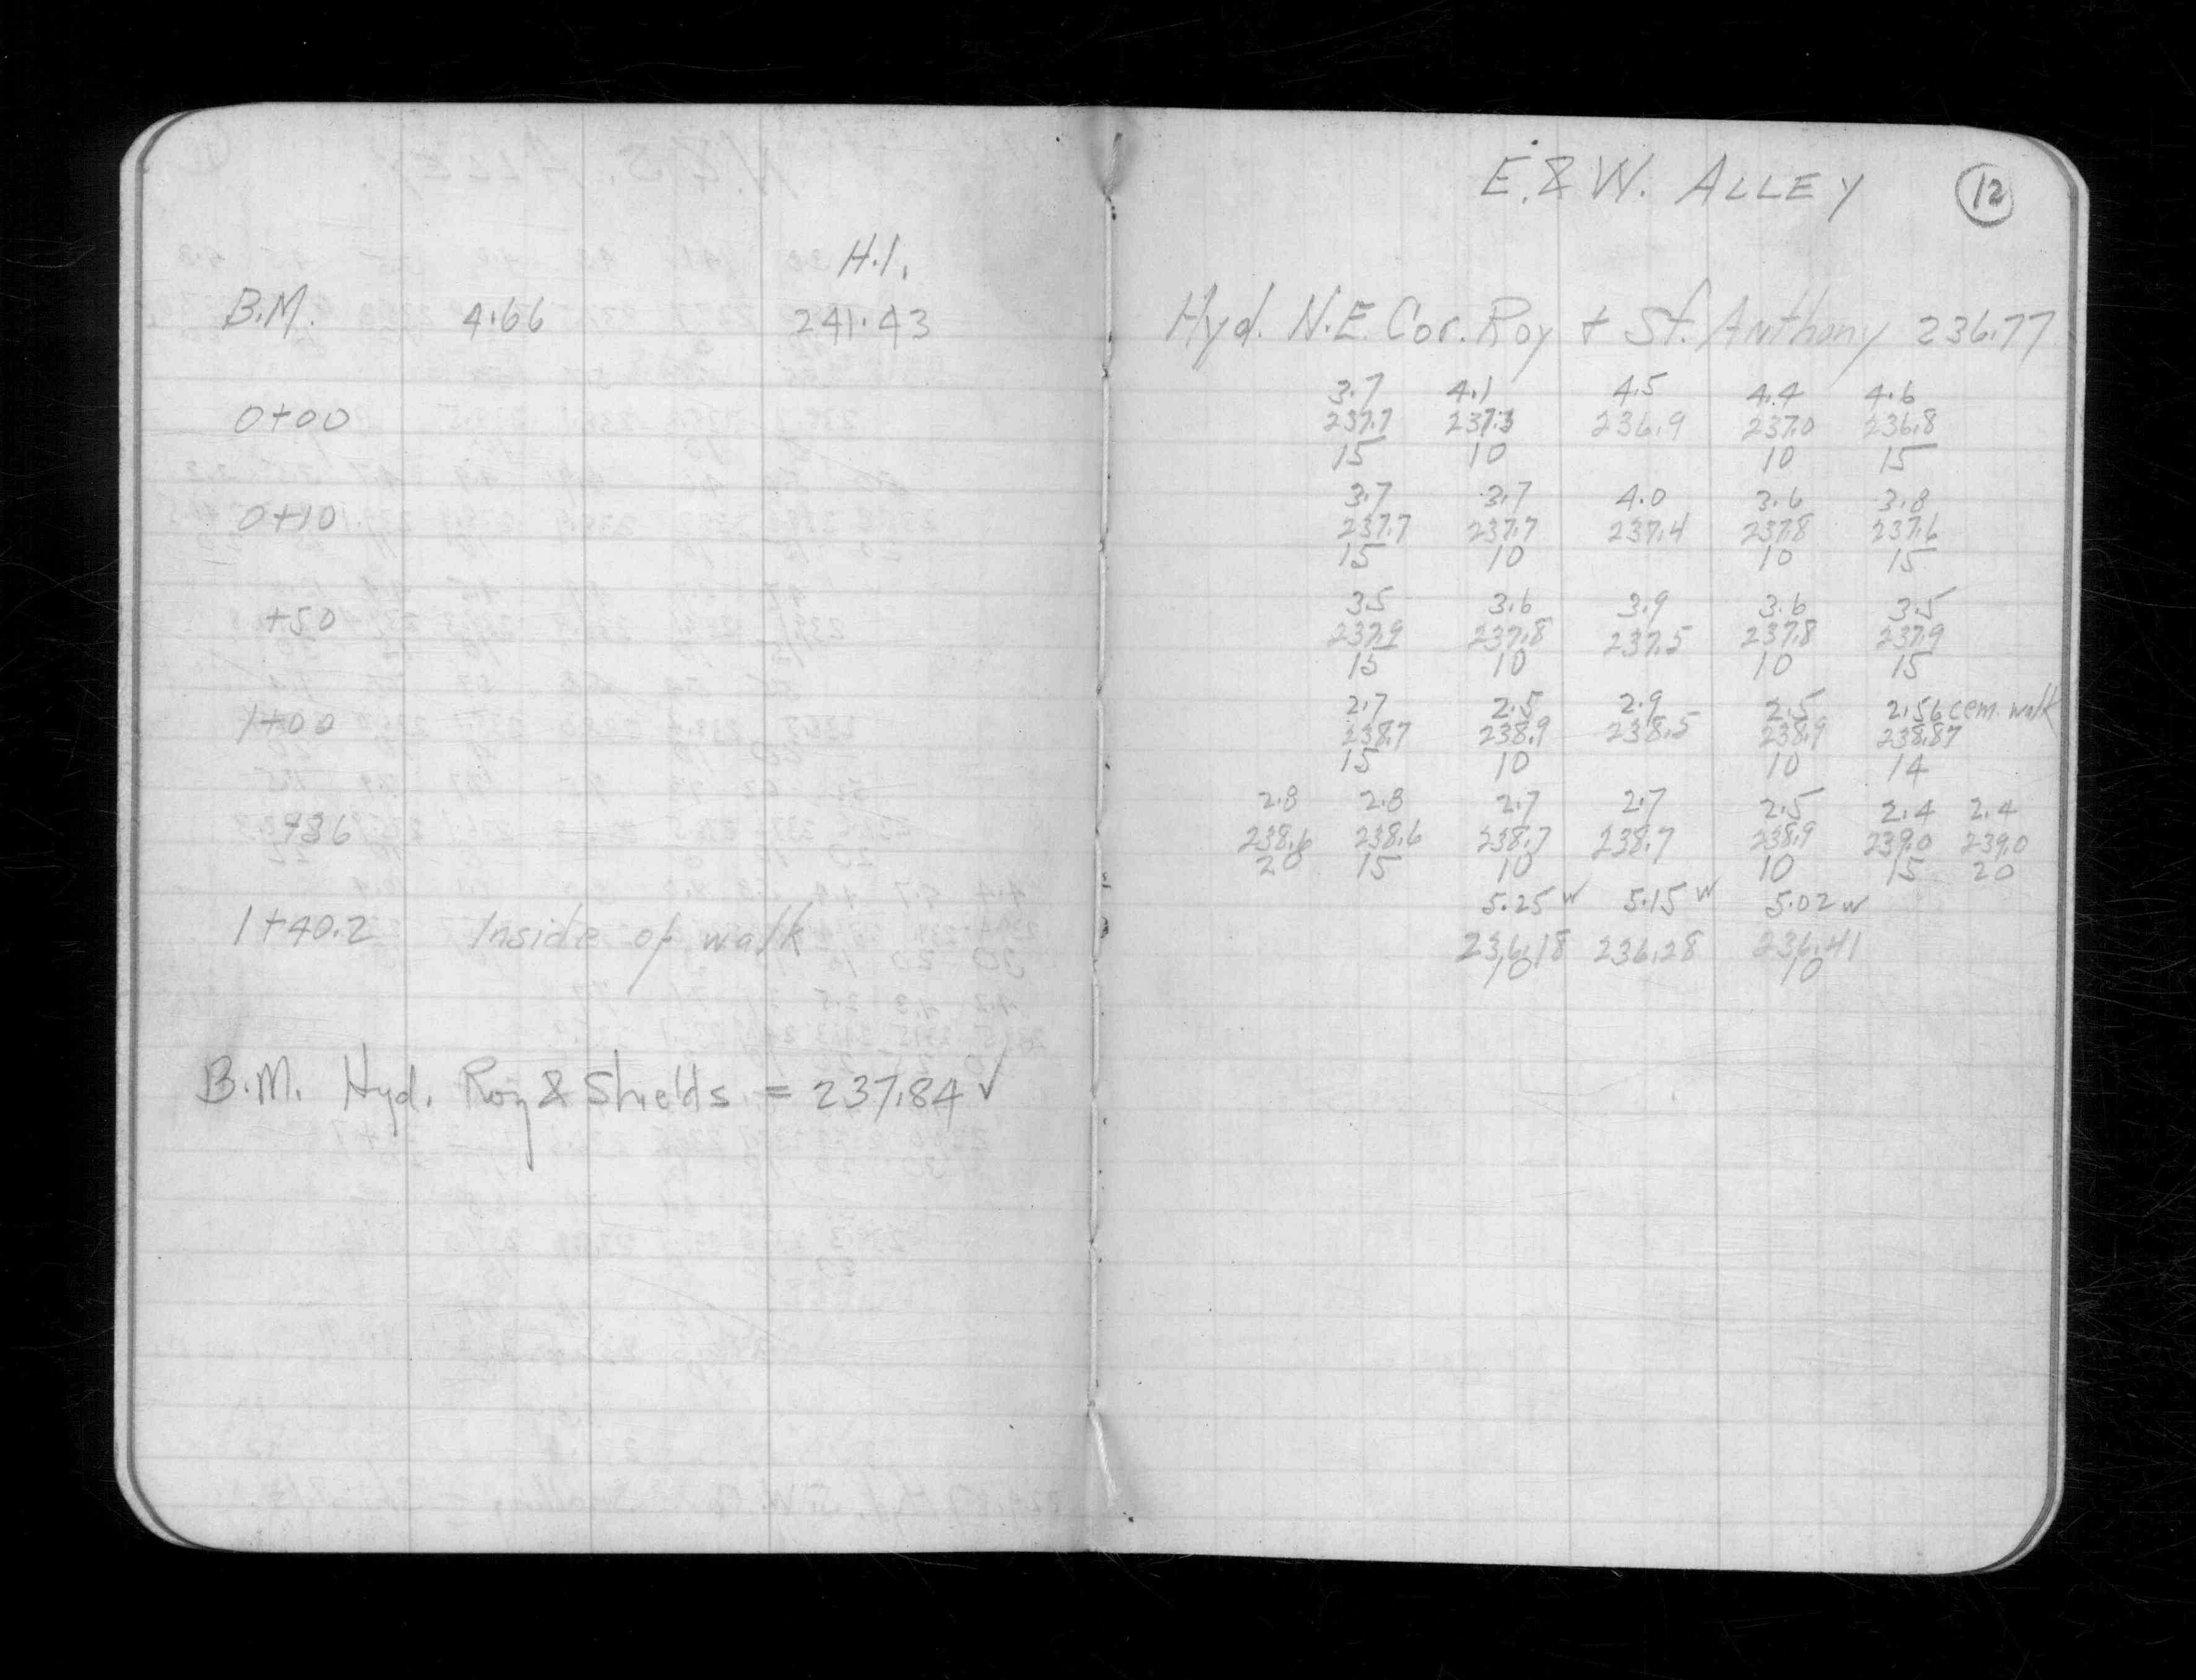 E. & W. ALLEY 12
H.I.
B.M. 4.66 241.43 Hyd. N.E. Cor. Roy + St. Anthony 236.77
3.7 4.1 4.5 4.4 4.6
0+00 237.7 237.3 236.9 237.0 236.8
15 10 10 15
3.7 3.7 4.0 3.6 3.8
0+10 237.7 237.7 237.4 237.8 237.6
15 10 10 15
3.5 3.6 3.9 3.6 3.5
+50 237.9 237.8 237.5 237.8 237.9
15 10 10 15
2.7 2.5 2.9 2.5 2.56 cem. walk
1+00 238.7 238.9 238.5 238.9 238.87
15 10 10 14
2.8 2.8 2.7 2.7 2.5 2.4 2.4
+36 238.6 238.6 238.7 238.7 238.9 239.0 239.0
20 15 10 10 15 20
5.25 w 5.15 w 5.02 w
1+40.2 Inside of walk 236.18 236.28 236.41
10 10
B.M. Hyd. Roy & Shields = 237.84 ✓